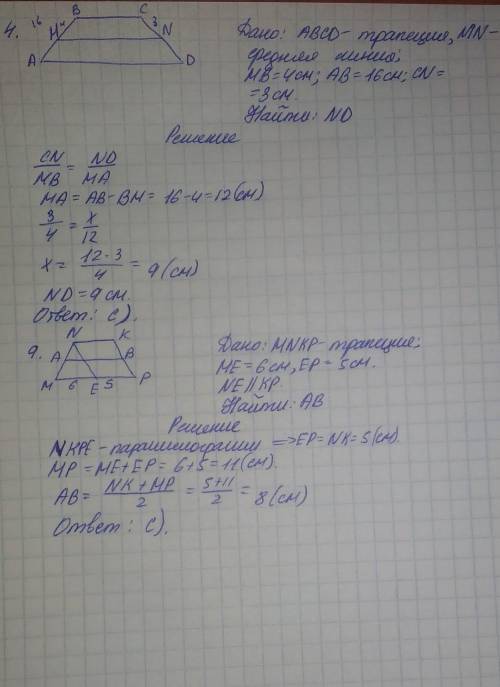 4.
B C
16 M 4 3 N
A D
Дано: ABCD - трапеция, MN -
средняя линия;
MB = 4см; AB = 16см; CN =
= 3см.
Найти: ND
Решение
CN/MB = ND/MA
MA = AB - BM = 16 - 4 = 12(см)
3/4 = x/12
x = 12·3/4 = 9(см)
ND = 9см.
Ответ: C).
9.
N K
A B
M 6 E 5 P
Дано: MNKP - трапеция;
ME = 6см, EP = 5см.
NE || KP.
Найти: AB
Решение
NKPE - параллелограмм => EP = NK = 5(см).
MP = ME + EP = 6 + 5 = 11(см).
AB = NK + MP/2 = 5 + 11/2 = 8(см)
Ответ: C).